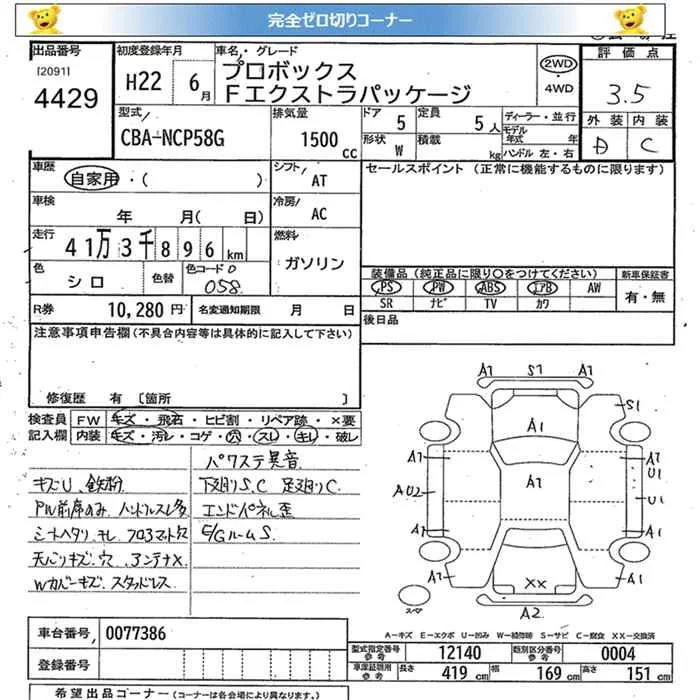 完全ゼロ切りコーナー
出品番号 初度登録年月 車名・グレード 評価点
[2091]
4429
H22 6月
プロボックス
Fエクストラパッケージ
2WD
・
4WD
3.5
外装 内装
D C
型式 排気量 ドア 定員 ディーラー・並行
CBA-NCP58G 1500cc 5 5人 モデル年式 年
形状 W 積載 kg ハンドル 左・右
車歴 自家用・( ) シフト AT
セールスポイント (正常に機能するものに限ります)
車検 年 月( 日) 冷房 AC
走行 41万3千896km 燃料 ガソリン
色 シロ 色替 色コードD 058
装備品 (純正品に限り○をつけてください) 新車保証書
PS PW ABS エアB AW 有・無
SR ナビ TV カワ
R券 10,280円 名変通知期限 月 日
後日品
注意事項申告欄(不具合内容等は具体的に記入して下さい)
修復歴 有 [箇所 ]
検査員 FW キズ・飛石・ヒビ割・リペア跡・×要
記入欄 内装 キズ・汚レ・コゲ・穴・スレ・キレ・破レ
パワステ異音
キズU、鉄粉 下廻りS、C 足廻りC
PW前席のみ、ハンドルスレ多 エンドパネル歪
シートヘタリ、キレ フロアマット欠 E/GルームS
天バリキズ・穴、アンテナX
Wカバーキズ・スタッドレス
A1 S1 A1
S1
A1
A1 A1
A1 U1
AU2 U1
A1 A1
A1 XX A1
スペア A2
A-キズ E-エクボ U-凹み W-補修跡 S-サビ C-腐食 XX-交換済
車台番号 0077386
型式指定番号 参考 12140 類別区分番号 参考 0004
登録番号
車庫証明用 参考 長さ 419cm 幅 169cm 高さ 151cm
希望出品コーナー (コーナーは各会場により異なります。)